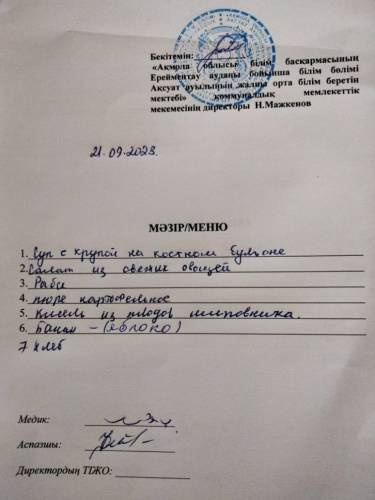 Бекітемін:
«Ақмола облысы білім басқармасының
Ерейментау ауданы бойынша білім бөлімі
Ақсуат ауылының жалпы орта білім беретін
мектебі» коммуналдық мемлекеттік
мекемесінің директоры Н.Мажкенов
21.09.2023.
МӘЗІР/МЕНЮ
1. Суп с крупой на костном бульоне
2. Салат из свежих овощей
3. Рыба
4. пюре картофельное
5. Кисель из плодов шиповника.
6. Банан - (яблоко)
7 хлеб
Медик:
Аспазшы:
Директордың ТІЖО: